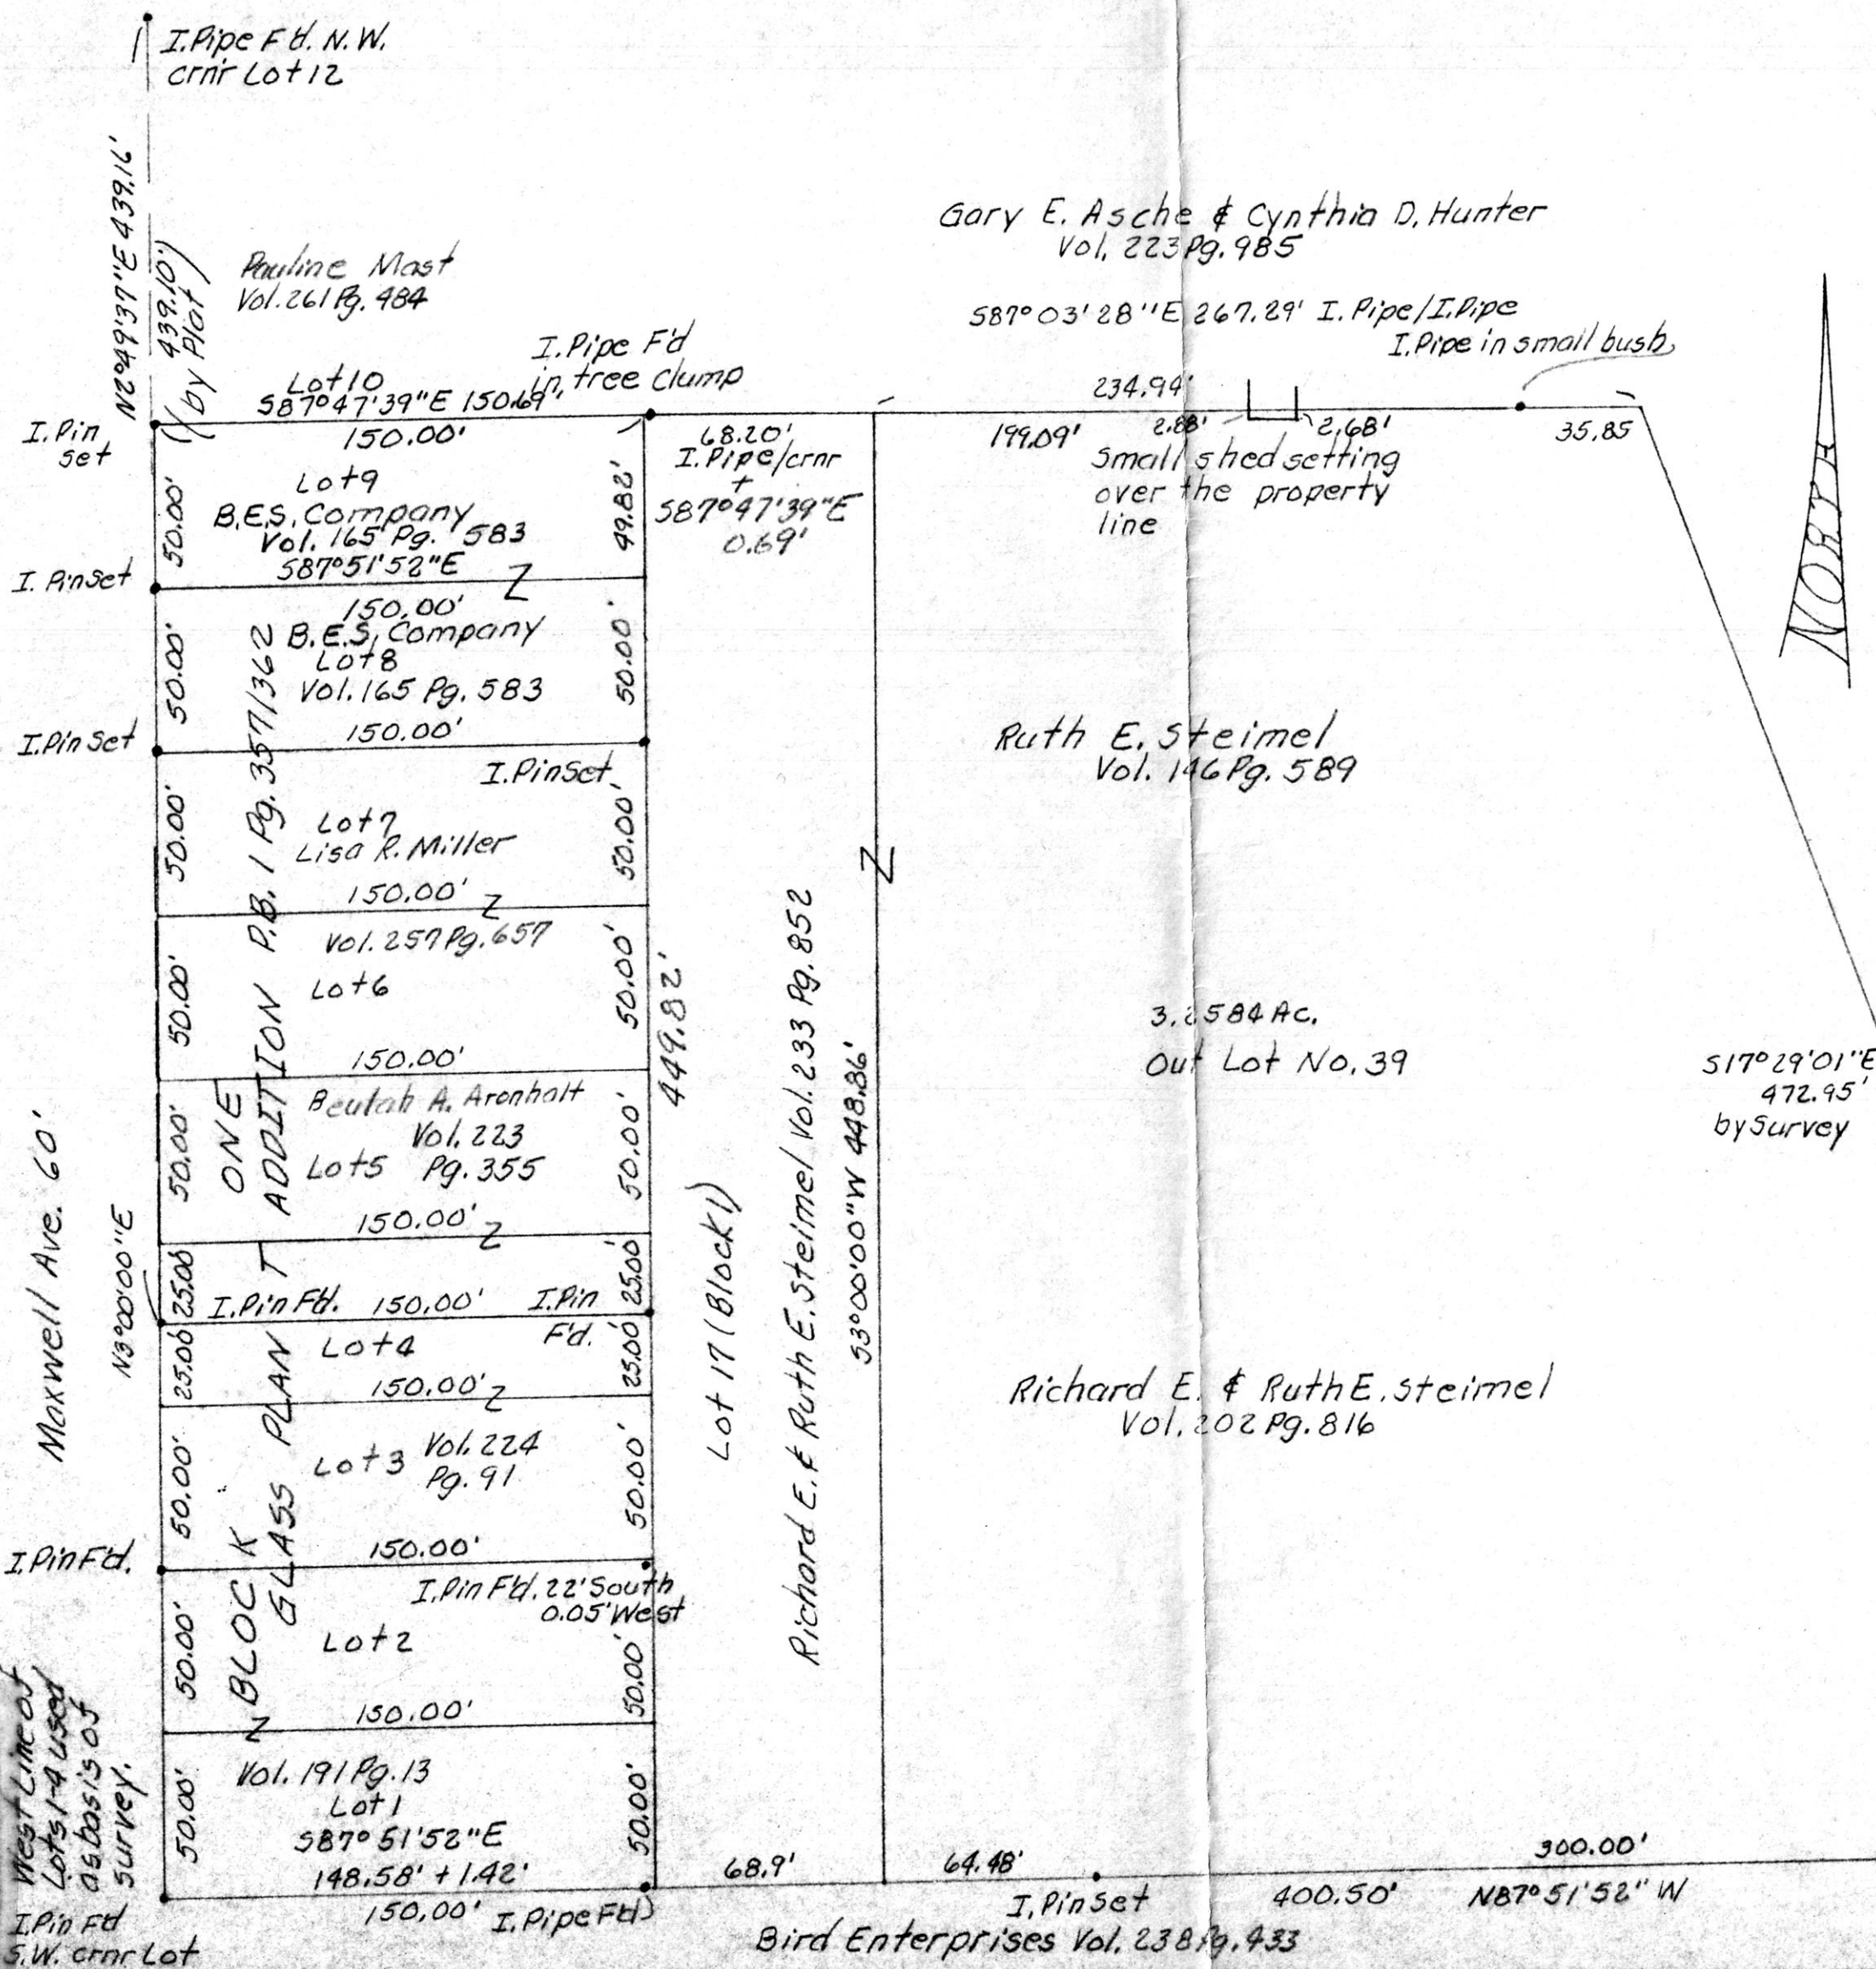 I.Pipe F'd. N.W.
crnr Lot 12
N2°49'37"E 439.16'
439.10'
(by Plat)
Pauline Mast
Vol. 261 Pg. 484
Gary E. Asche & Cynthia D. Hunter
Vol. 223 Pg. 985
S87°03'28"E 267.29' I. Pipe/I.Pipe
I.Pipe in small bush
I.Pipe F'd
in tree clump
Lot 10
S87°47'39"E 150.69'
234.94'
I. Pin
set
150.00'
68.20'
I. Pipe/crnr
+
S87°47'39"E
0.69'
199.09'
2.88'
2.68'
35.85
Small shed setting
over the property
line
NORTH
50.00'
Lot 9
B.E.S. Company
Vol. 165 Pg. 583
S87°51'52"E
49.82'
I. Pin Set
150.00'
B.E.S. Company
Lot 8
Vol. 165 Pg. 583
150.00'
50.00'
50.00'
I.Pin Set
I.Pin Set
Ruth E. Steimel
Vol. 146 Pg. 589
50.00'
Lot 7
Lisa R. Miller
150.00'
50.00'
Vol. 257 Pg. 657
Lot 6
150.00'
50.00'
50.00'
449.82'
3.2584 Ac.
Out Lot No. 39
S17°29'01"E
472.95'
by Survey
Beulah A. Aronhalt
Vol. 223
Lot 5 Pg. 355
150.00'
50.00'
50.00'
Maxwell Ave. 60'
N3°00'00"E
BLOCK ONE
GLASS PLANT ADDITION P.B. 1 Pg. 357/362
Lot 17 (Block 1)
Richard E. & Ruth E. Steimel Vol. 233 Pg. 852
S3°00'00"W 448.86'
25.00
I.Pin F'd. 150.00' I.Pin
F'd.
25.00'
25.00
Lot 4
150.00'
25.00'
Richard E. & Ruth E. Steimel
Vol. 202 Pg. 816
50.00'
Lot 3 Vol. 224
Pg. 91
150.00'
50.00'
I.Pin F'd.
I.Pin F'd. 22' South
0.05' West
50.00'
Lot 2
150.00'
50.00'
West Line of
Lots 1-4 used
as basis of
survey.
50.00'
Vol. 191 Pg. 13
Lot 1
S87°51'52"E
148.58' + 1.42'
50.00'
68.9'
64.48'
300.00'
150.00' I.Pipe F'd
I.Pin Set
400.50'
N87°51'52"W
I.Pin F'd
S.W. crnr Lot
Bird Enterprises Vol. 238 Pg. 433